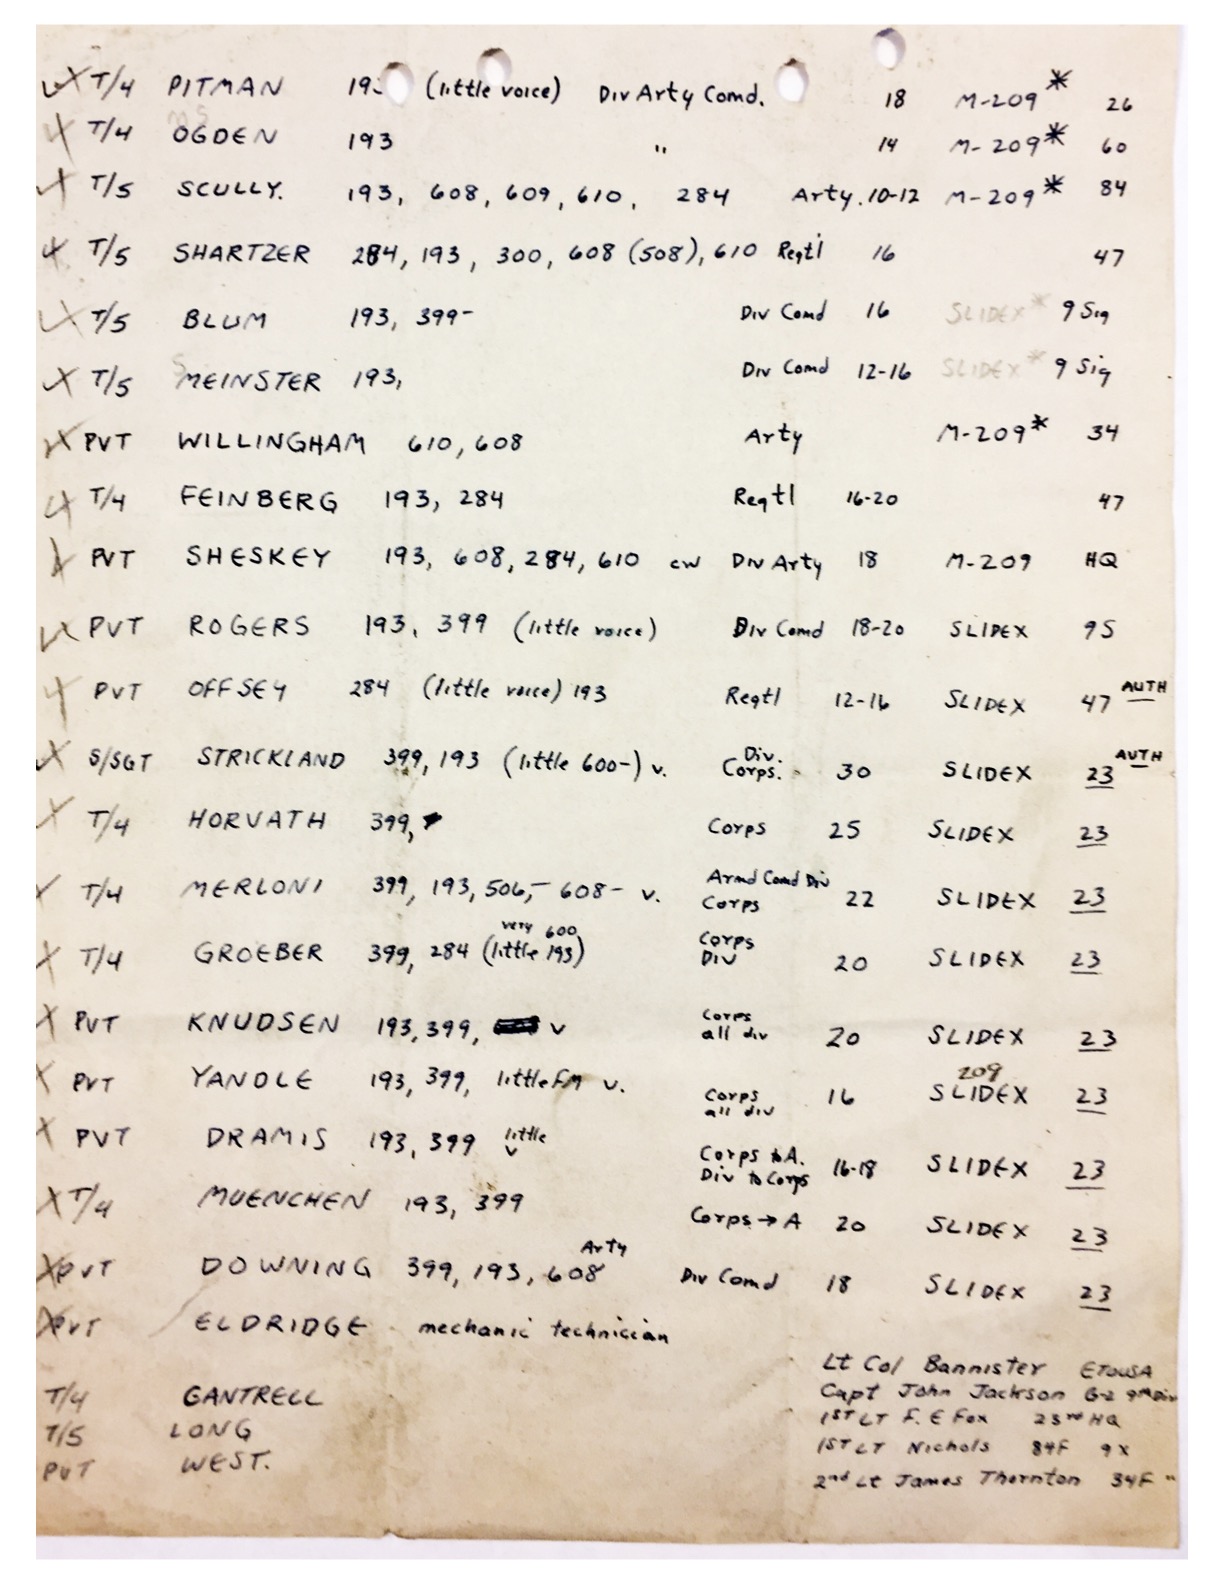 T/4 PITMAN 193 (little voice) Div Arty Comd. 18 M-209* 26
T/4 OGDEN 193 " 14 M-209* 60
T/5 SCULLY. 193, 608, 609, 610, 284 Arty. 10-12 M-209* 84
T/5 SHARTZER 284, 193, 300, 608 (508), 610 Regtl 16 47
T/5 BLUM 193, 399- Div Comd 16 SLIDEX* 9 Sig
T/5 MEINSTER 193, Div Comd 12-16 SLIDEX* 9 Sig
PVT WILLINGHAM 610, 608 Arty M-209* 34
T/4 FEINBERG 193, 284 Regtl 16-20 47
PVT SHESKEY 193, 608, 284, 610 cw Div Arty 18 M-209 HQ
PVT ROGERS 193, 399 (little voice) Div Comd 18-20 SLIDEX 9S
PVT OFFSEY 284 (little voice) 193 Regtl 12-16 SLIDEX 47 AUTH
S/SGT STRICKLAND 399, 193 (little 600-) v. Div. Corps. 30 SLIDEX 23 AUTH
T/4 HORVATH 399, Corps 25 SLIDEX 23
T/4 MERLONI 399, 193, 506,- 608- v. Armd Comd Div Corps 22 SLIDEX 23
T/4 GROEBER 399, 284 (very little 600, 193) Corps Div 20 SLIDEX 23
PVT KNUDSEN 193, 399, v Corps all div 20 SLIDEX 23
PVT YANDLE 193, 399, little FM v. Corps all div 16 209 SLIDEX 23
PVT DRAMIS 193, 399 little v Corps to A. Div to Corps 16-18 SLIDEX 23
T/4 MUENCHEN 193, 399 Corps → A 20 SLIDEX 23
PVT DOWNING 399, 193, 608 Arty Div Comd 18 SLIDEX 23
PVT ELDRIDGE mechanic technician
Lt Col Bannister ETOUSA
T/4 GANTRELL Capt John Jackson G-2 9th Div
T/5 LONG 1ST LT F. E Fox 23rd HQ
PVT WEST. 1ST LT Nichols 84F 9X
2nd Lt James Thornton 34F "